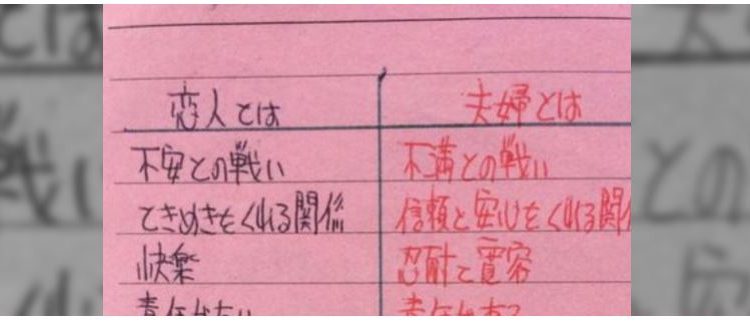 恋人とは 夫婦とは
不安との戦い 不満との戦い
ときめきをくれる関係 信頼と安心をくれる関係
快楽 忍耐と寛容
責任がない 責任がある